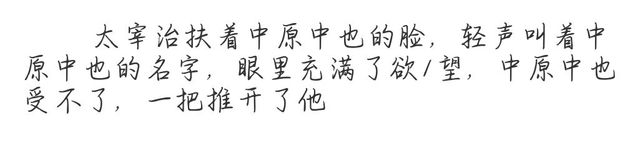 太宰治扶着中原中也的脸，轻声叫着中
原中也的名字，眼里充满了欲/望，中原中也
受不了，一把推开了他